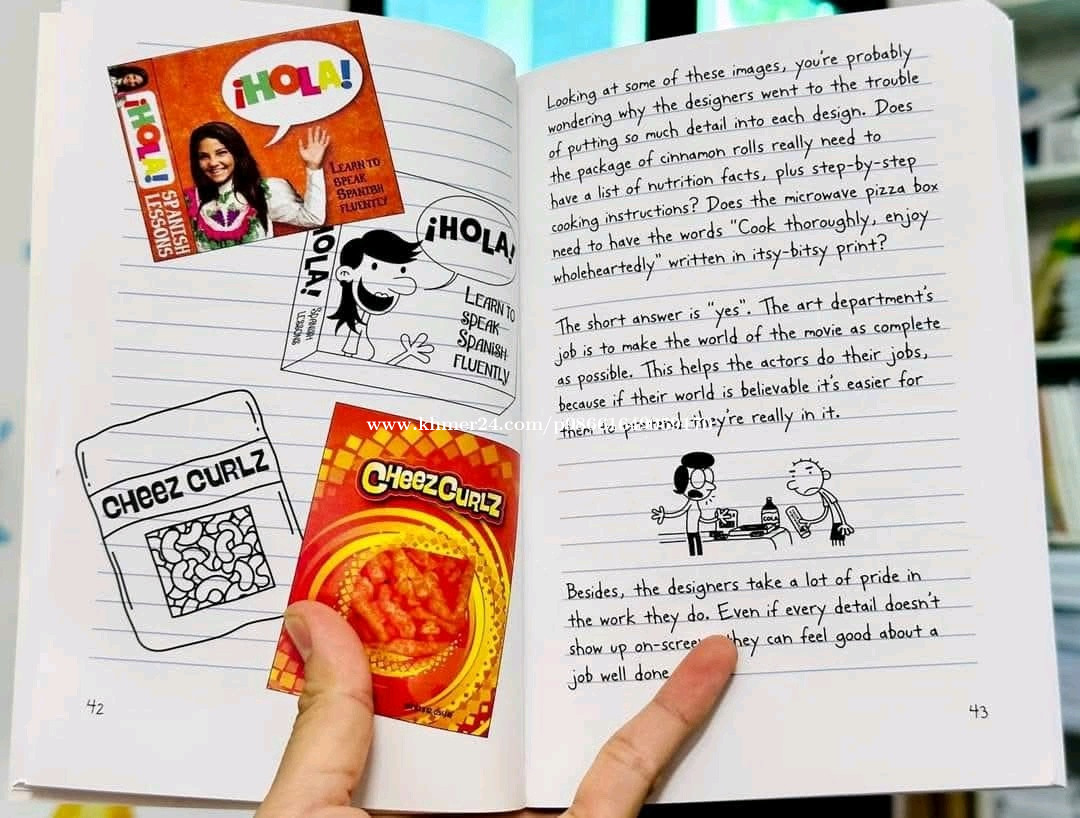 ¡HOLA!
¡HOLA!
SPANISH
LESSONS
LEARN TO
SPEAK
SPANISH
FLUENTLY
¡HOLA!
HOLA!
SPANISH
LESSONS
LEARN TO
SPEAK
SPANISH
FLUENTLY
CHEEZ CURLZ
CHEEZCURLZ
42
Looking at some of these images, you're probably
wondering why the designers went to the trouble
of putting so much detail into each design. Does
the package of cinnamon rolls really need to
have a list of nutrition facts, plus step-by-step
cooking instructions? Does the microwave pizza box
need to have the words "Cook thoroughly, enjoy
wholeheartedly" written in itsy-bitsy print?
The short answer is "yes". The art department's
job is to make the world of the movie as complete
as possible. This helps the actors do their jobs,
because if their world is believable it's easier for
them to they're really in it.
COLA
Besides, the designers take a lot of pride in
the work they do. Even if every detail doesn't
show up on-screen they can feel good about a
job well done
43
www.khmer24.com